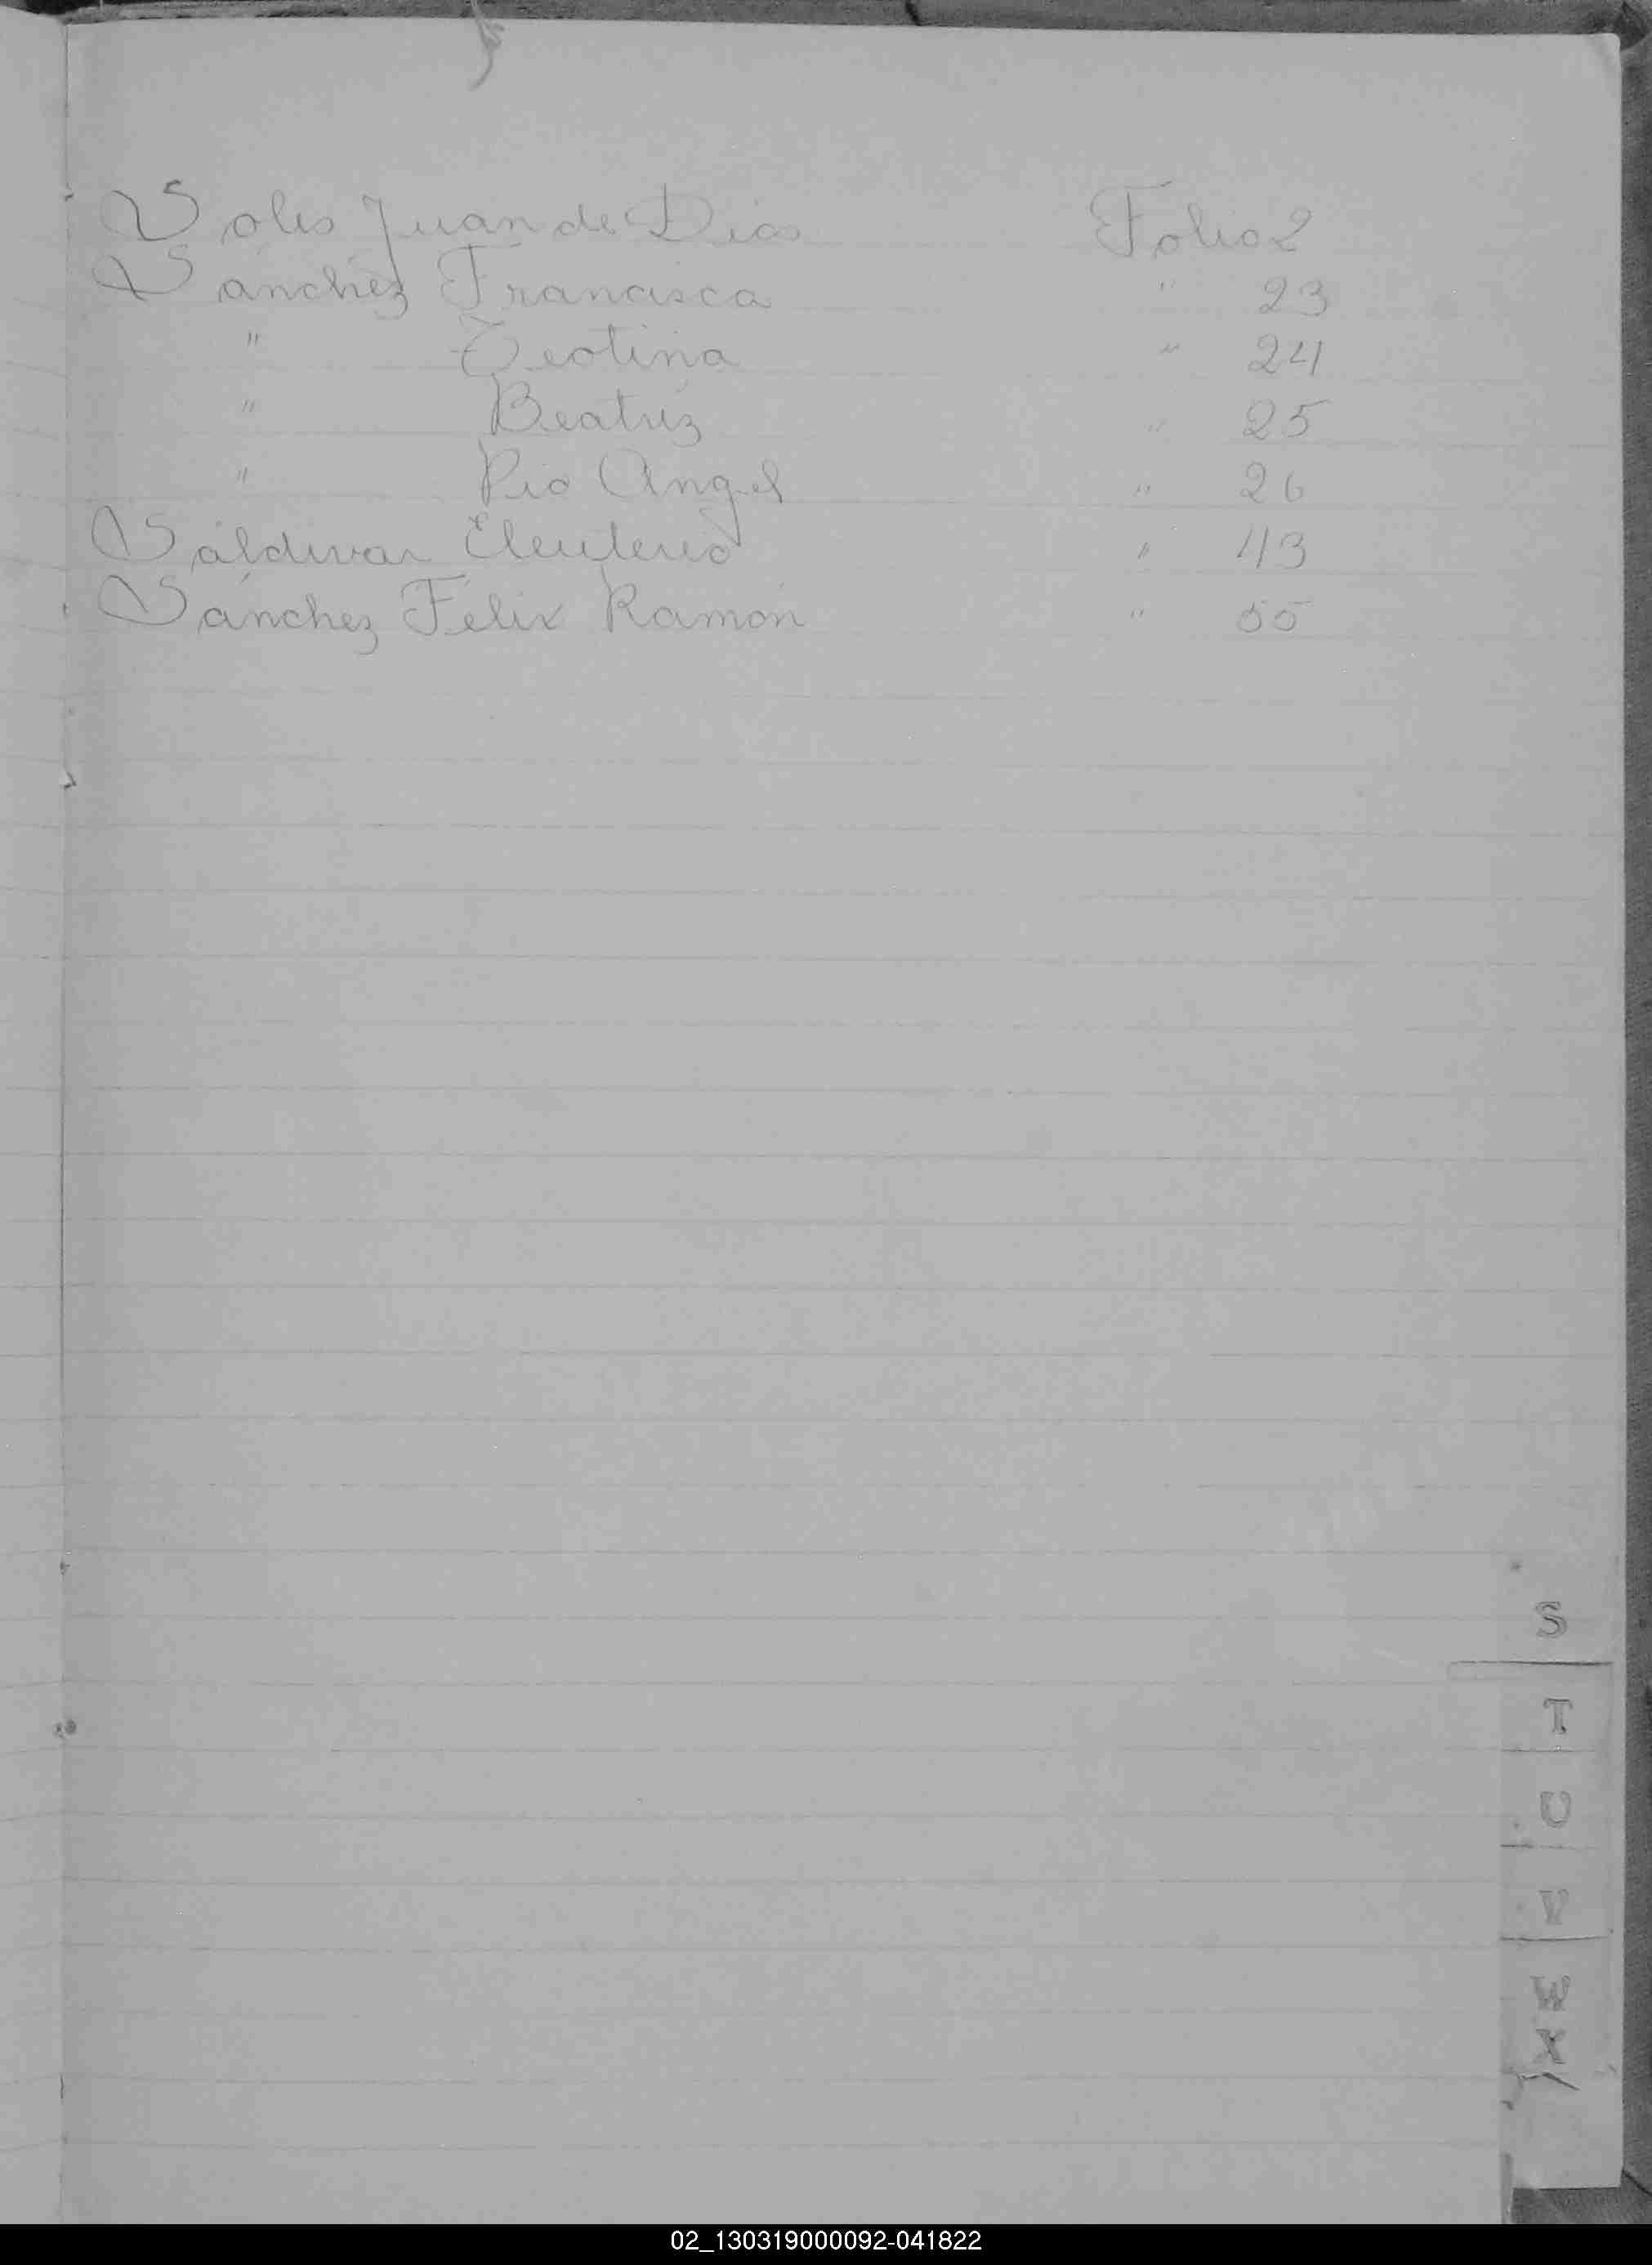 Solis Juan de Dios Folio 2
Sánchez Francisca " 23
" Teotina " 24
" Beatriz " 25
" Pio Angel " 26
Sáldivar Eleuterio " 43
Sánchez Félix Ramón " 55
S
T
U
V
W
X
Y
02_130319000092-041822